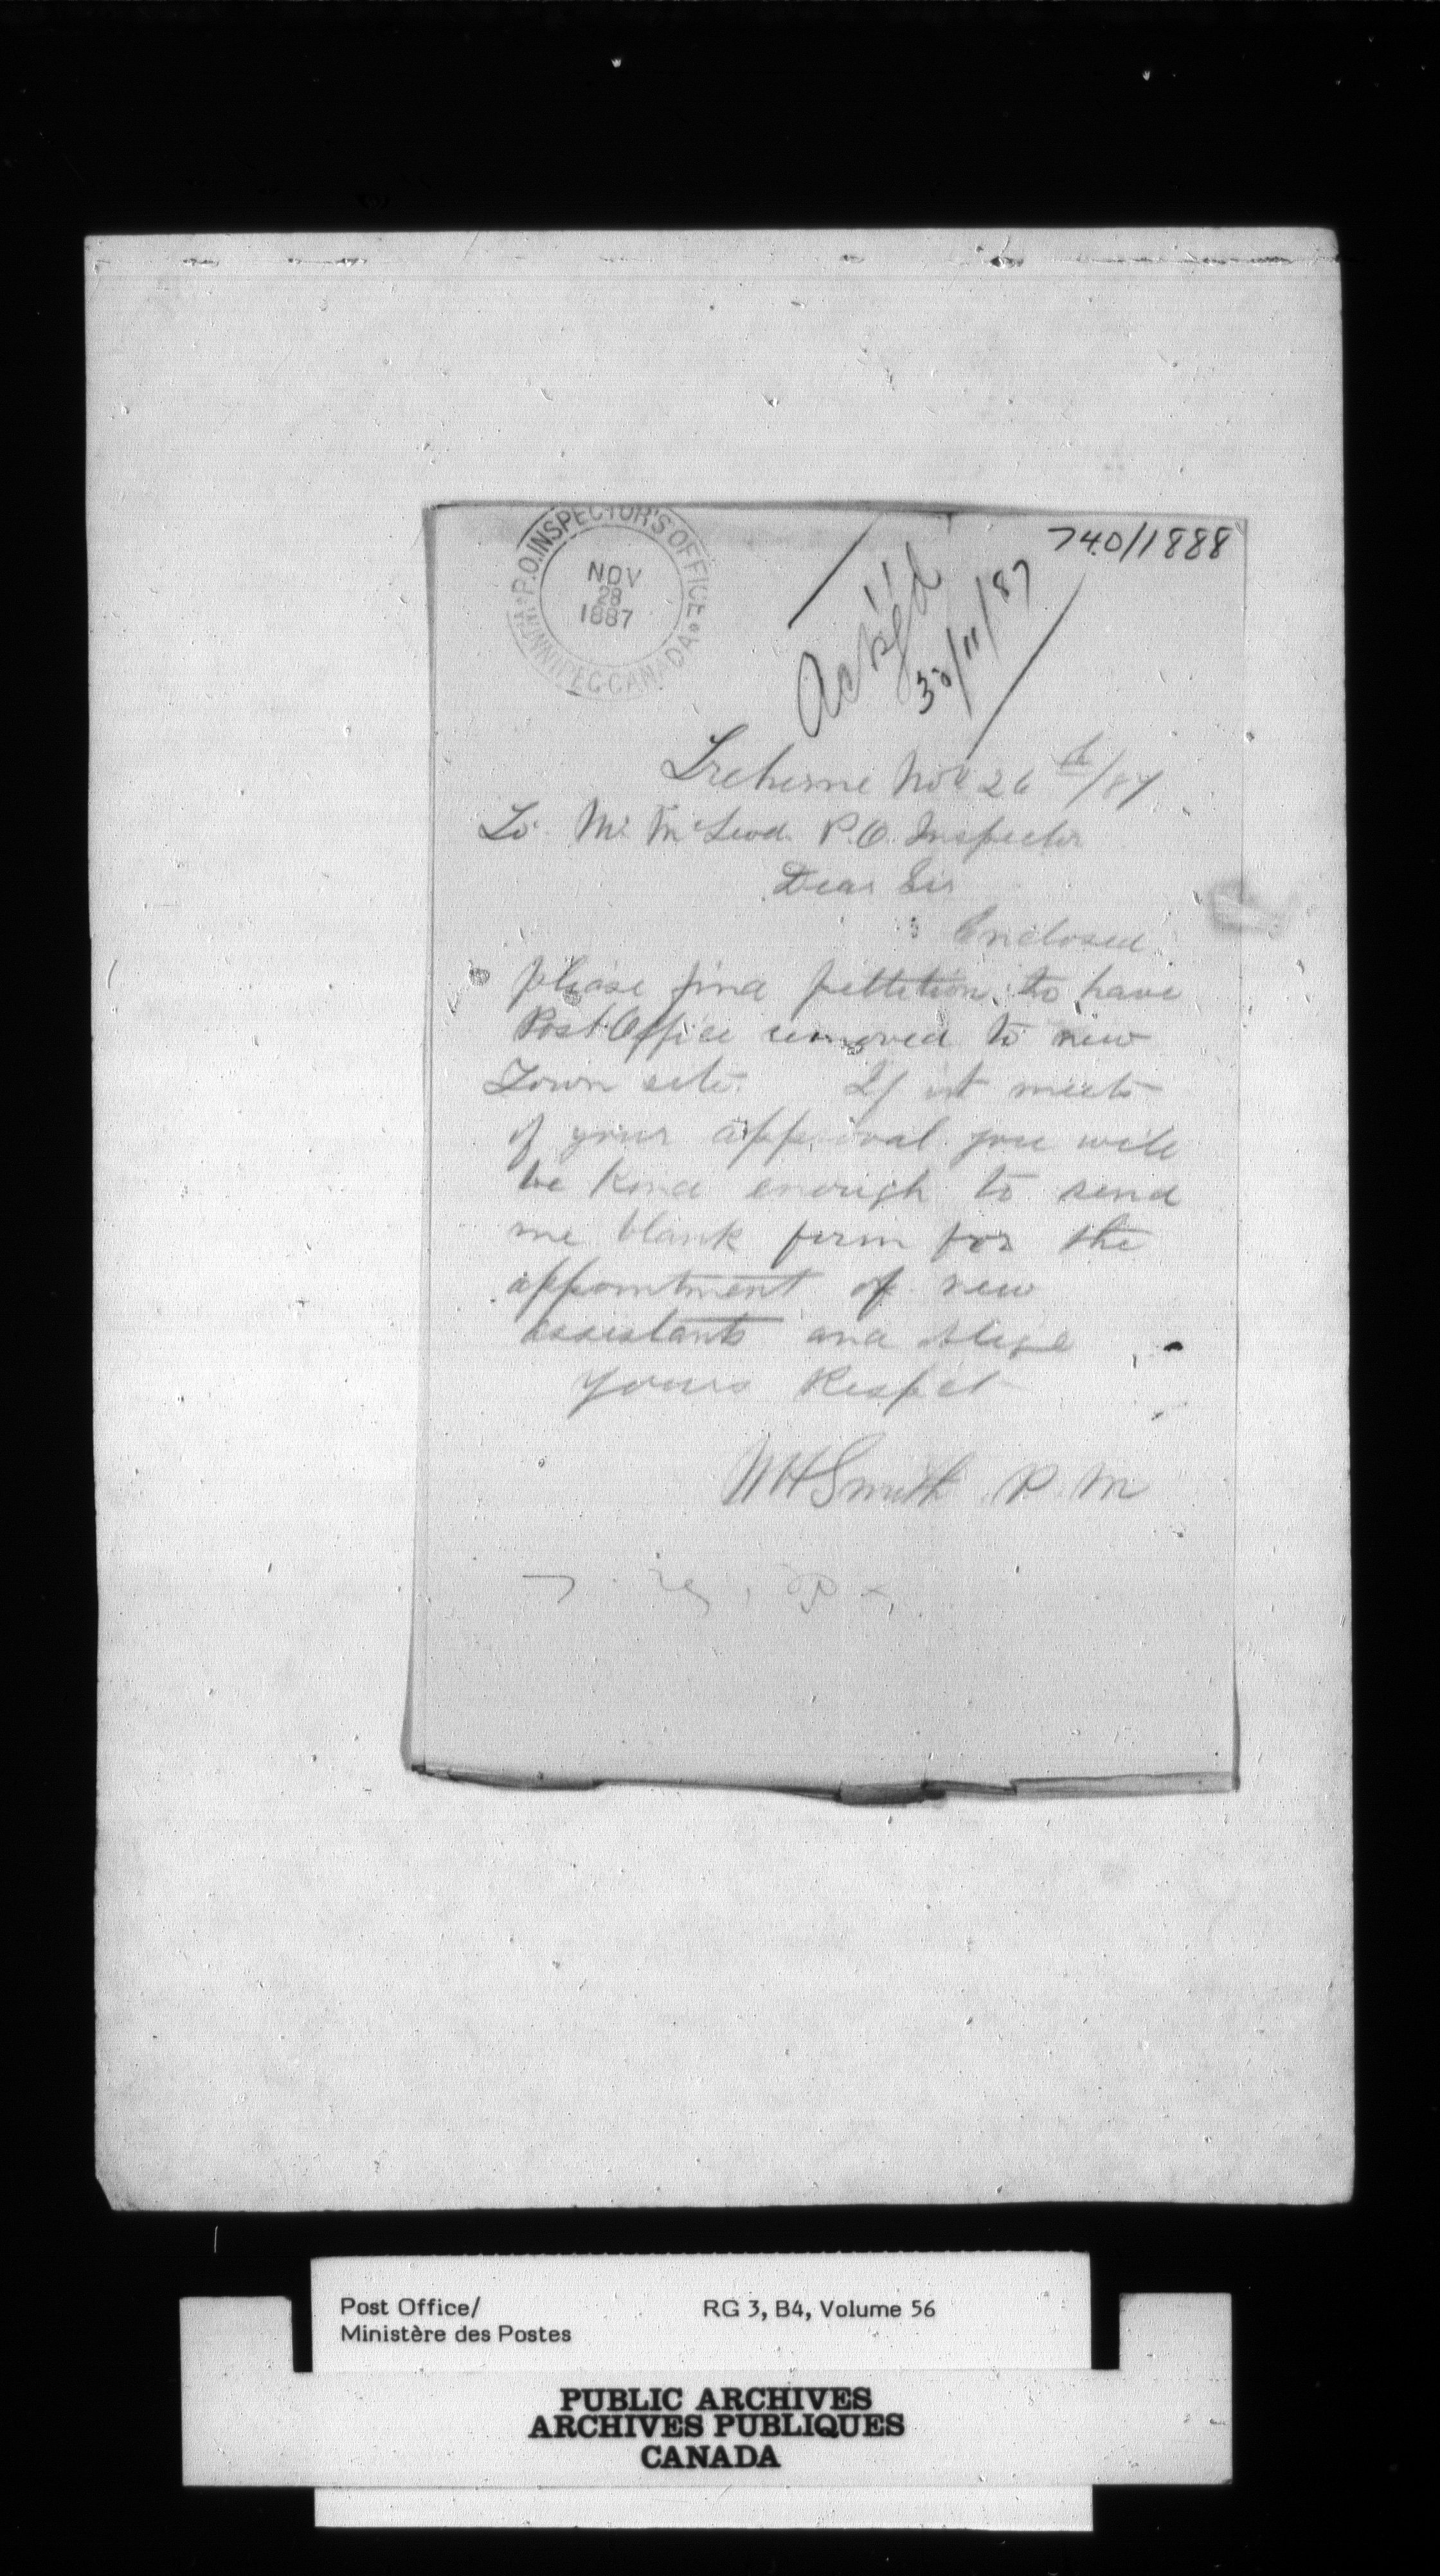 P.O. INSPECTOR'S OFFICE
WINNIPEG CANADA
NOV
28
1887
740/1888
Ack'd
30/11/87
Treherne Nov 26th/87
To Mr McLeod P.O. Inspector
Dear Sir
Enclosed
please find pettetion to have
Post Office removed to new
Town site. If it meets
of your approval you will
be kind enough to send
me blank form for the
appointment of new
assistants and oblige
Yours Respct
WH Smith P.M
Post Office/
Ministère des Postes
RG 3, B4, Volume 56
PUBLIC ARCHIVES
ARCHIVES PUBLIQUES
CANADA